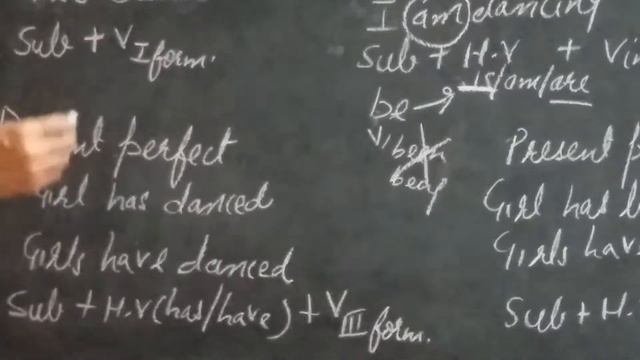 Sub + V I form.
perfect
Girl has danced
Girls have danced
Sub + H.V (has/have) + V III form.
I am dancing
Sub + H.V + Vin
is/am/are
be →
Present p
Girl has b
Girls hav
Sub + H.